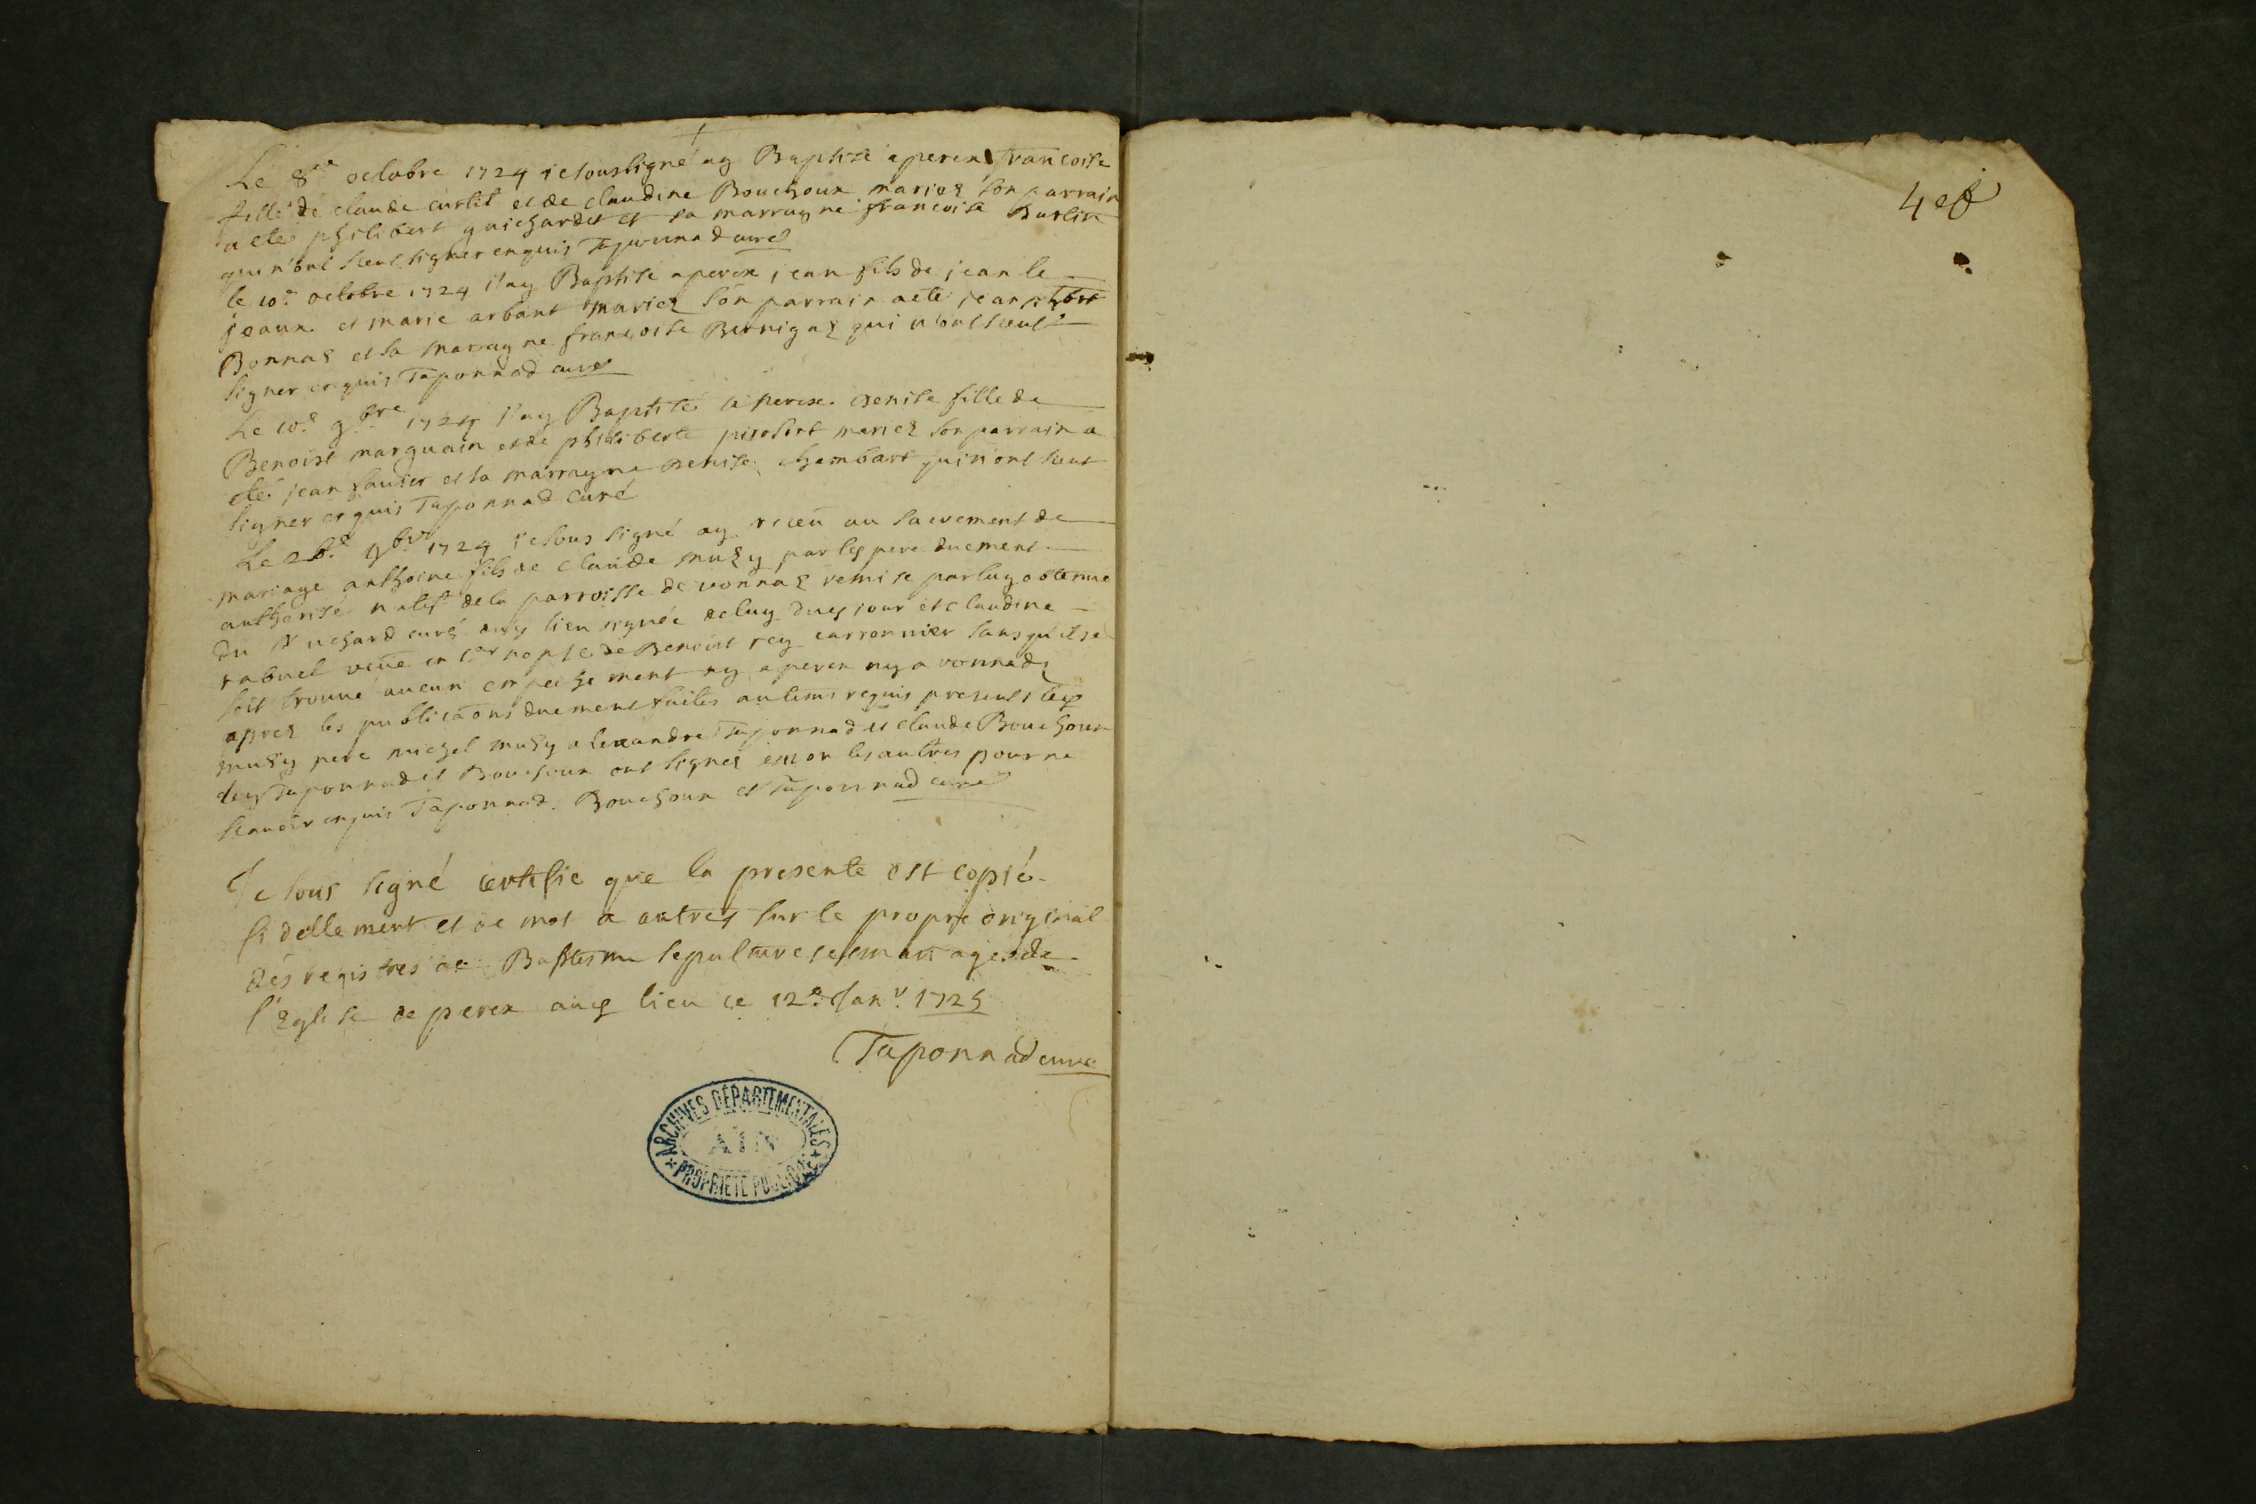 Le 8me octobre 1724 ie sousigné ay Baptisé a perex francoise
fille de claude curlit et de claudine Bouchoux mariez son parrain
a eté philibert guichardet et sa marrayne francoise Burlin
qui n'ont sceut signer enquis Taponnad curé
le 10e octobre 1724 i'ay Baptisé a perex jean fils de jean le
jeaux et marie arbant mariez son parrain a eté jean phbert
Bonnaz et sa marrayne francoise Bernigaz qui n'ont sceut
signer enquis Taponnad curé
Le 10e 9bre 1724 i'ay Baptisé a perex denise fille de
Benoist marguain et de philiberte mariez son parrain a
eté jean favier et sa marrayne denise chambart qui n'ont sceut
signer enquis Taponnad curé
Le 9br 1724 ie sous signé ay receu au sacrement de
mariage anthoine fils de claude muzy par led pere duement
authorisé natif de la parroisse de vonnaz remise par luy obtenue
du sr curé aud lieu signée de luy dud jour et claudine
rabuel veue en nopce de Benoist rey carronnier sans qu'il se
soit trouvé aucun empechement ny a perex ny a vonnaz
aprez les publicaons duement faites au tems requis presents led
muzy pere michel muzy alexandre Taponnad et claude Bouchoux
lesd Taponnad et Bouchoux ont signez et non les autres pour ne
scavoir enquis Taponnad. Bouchoux et Taponnad curé
Je sous signé certifie que la presente est copié
fidellement et de mot a autres sur le propre original
des registres de Baptesme sepultures et mariages de
l'Eglise de perex aud lieu ce 12e Janv. 1725
Taponnad curé
ARCHIVES DÉPARTEMENTALES
AIN
PROPRIÉTÉ PUBLIQUE